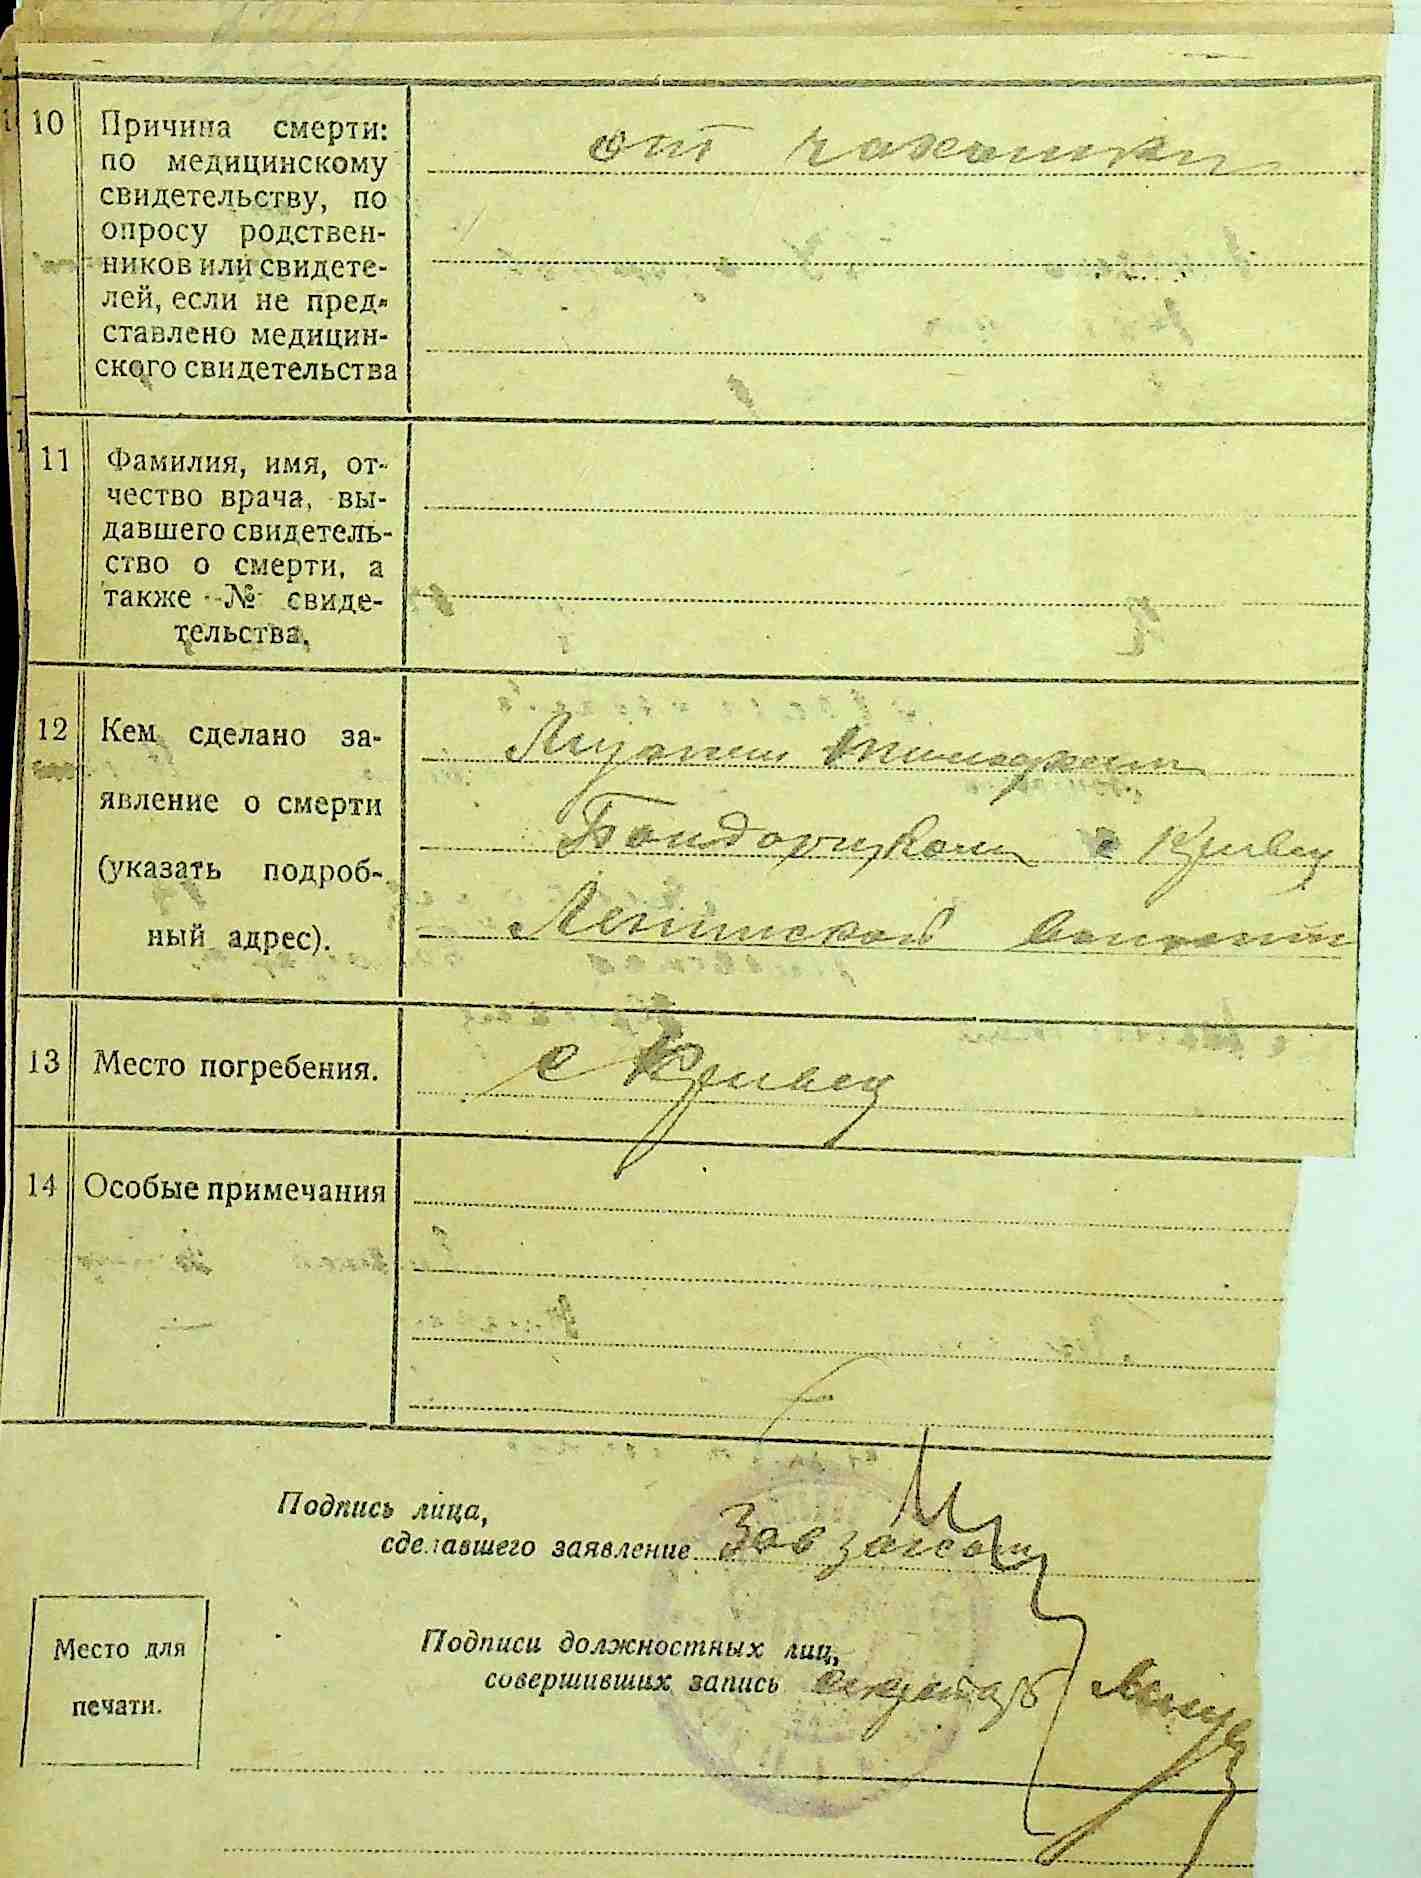 10 Причина смерти:
по медицинскому
свидетельству, по
опросу родствен-
ников или свидете-
лей, если не пред-
ставлено медицин-
ского свидетельства
от чахотки
11 Фамилия, имя, от-
чество врача, вы-
давшего свидетель-
ство о смерти, а
также № свиде-
тельства.
12 Кем сделано за-
явление о смерти
(указать подроб-
ный адрес).
с Кривец
Ленинской волости
13 Место погребения.
с Кривец
14 Особые примечания
Подпись лица,
сделавшего заявление Завзагсом
Подписи должностных лиц,
совершивших запись секретарь
Место для
печати.